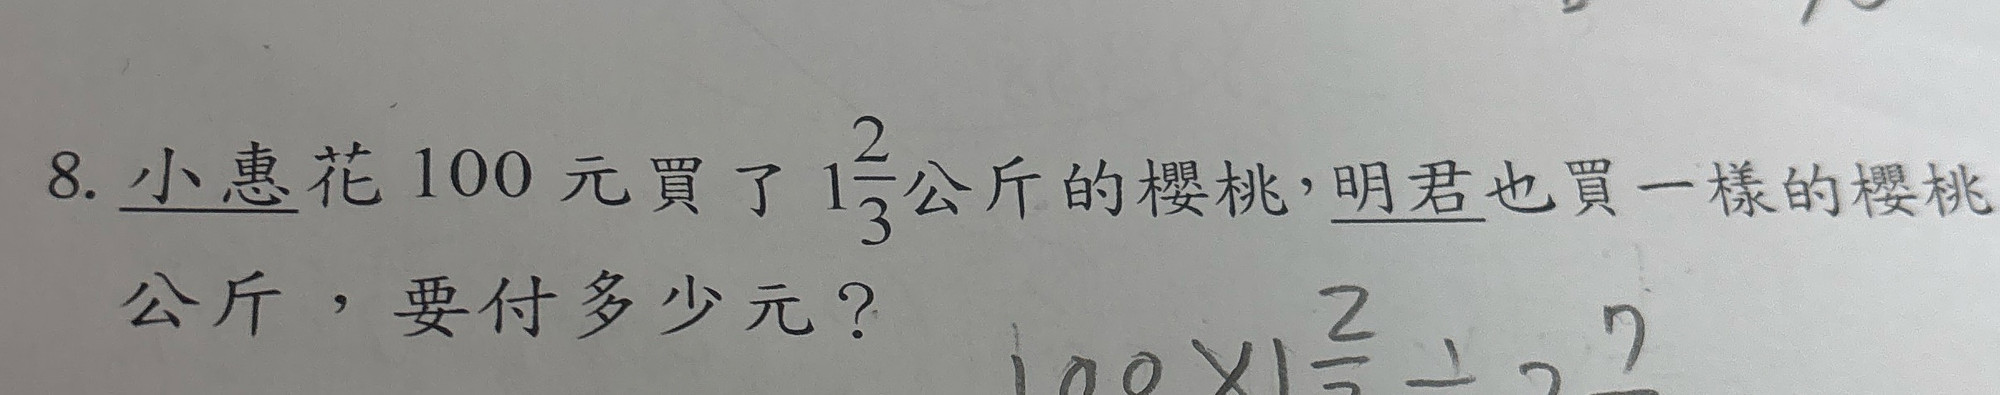 8. 小惠花 100 元買了 1 2/3 公斤的櫻桃，明君也買一樣的櫻桃
公斤，要付多少元？
100×1 2/3 ÷